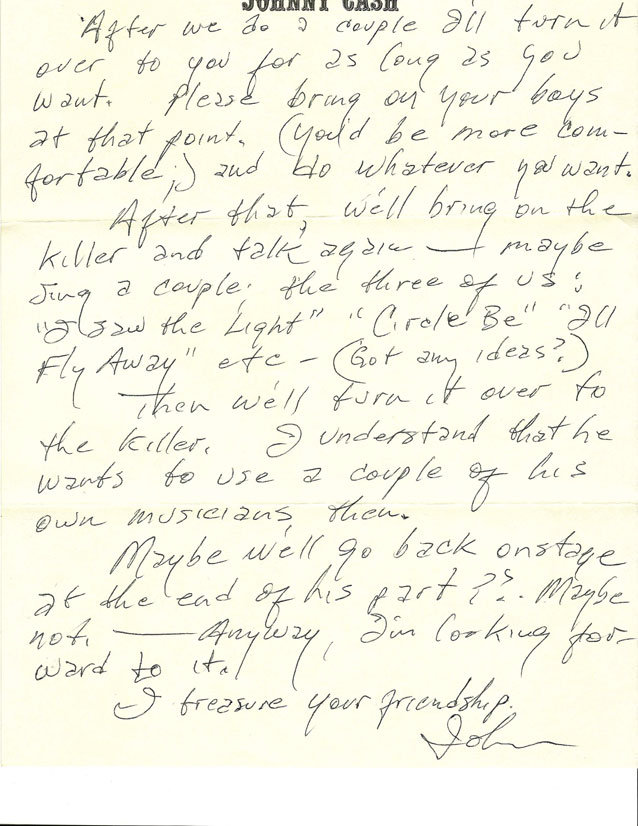 JOHNNY CASH
After we do a couple I'll turn it
over to you for as long as you
want. Please bring on your boys
at that point. (You'd be more com-
fortable;) and do whatever you want.
After that, we'll bring on the
Killer and talk again — maybe
sing a couple, the three of us:
"I saw the Light" "Circle Be" "I'll
Fly Away" etc - (Got any ideas?)
Then we'll turn it over to
the Killer. I understand that he
wants to use a couple of his
own musicians, then.
Maybe we'll go back onstage
at the end of his part??. Maybe
not. — Anyway, I'm looking for-
ward to it.
I treasure your friendship.
John